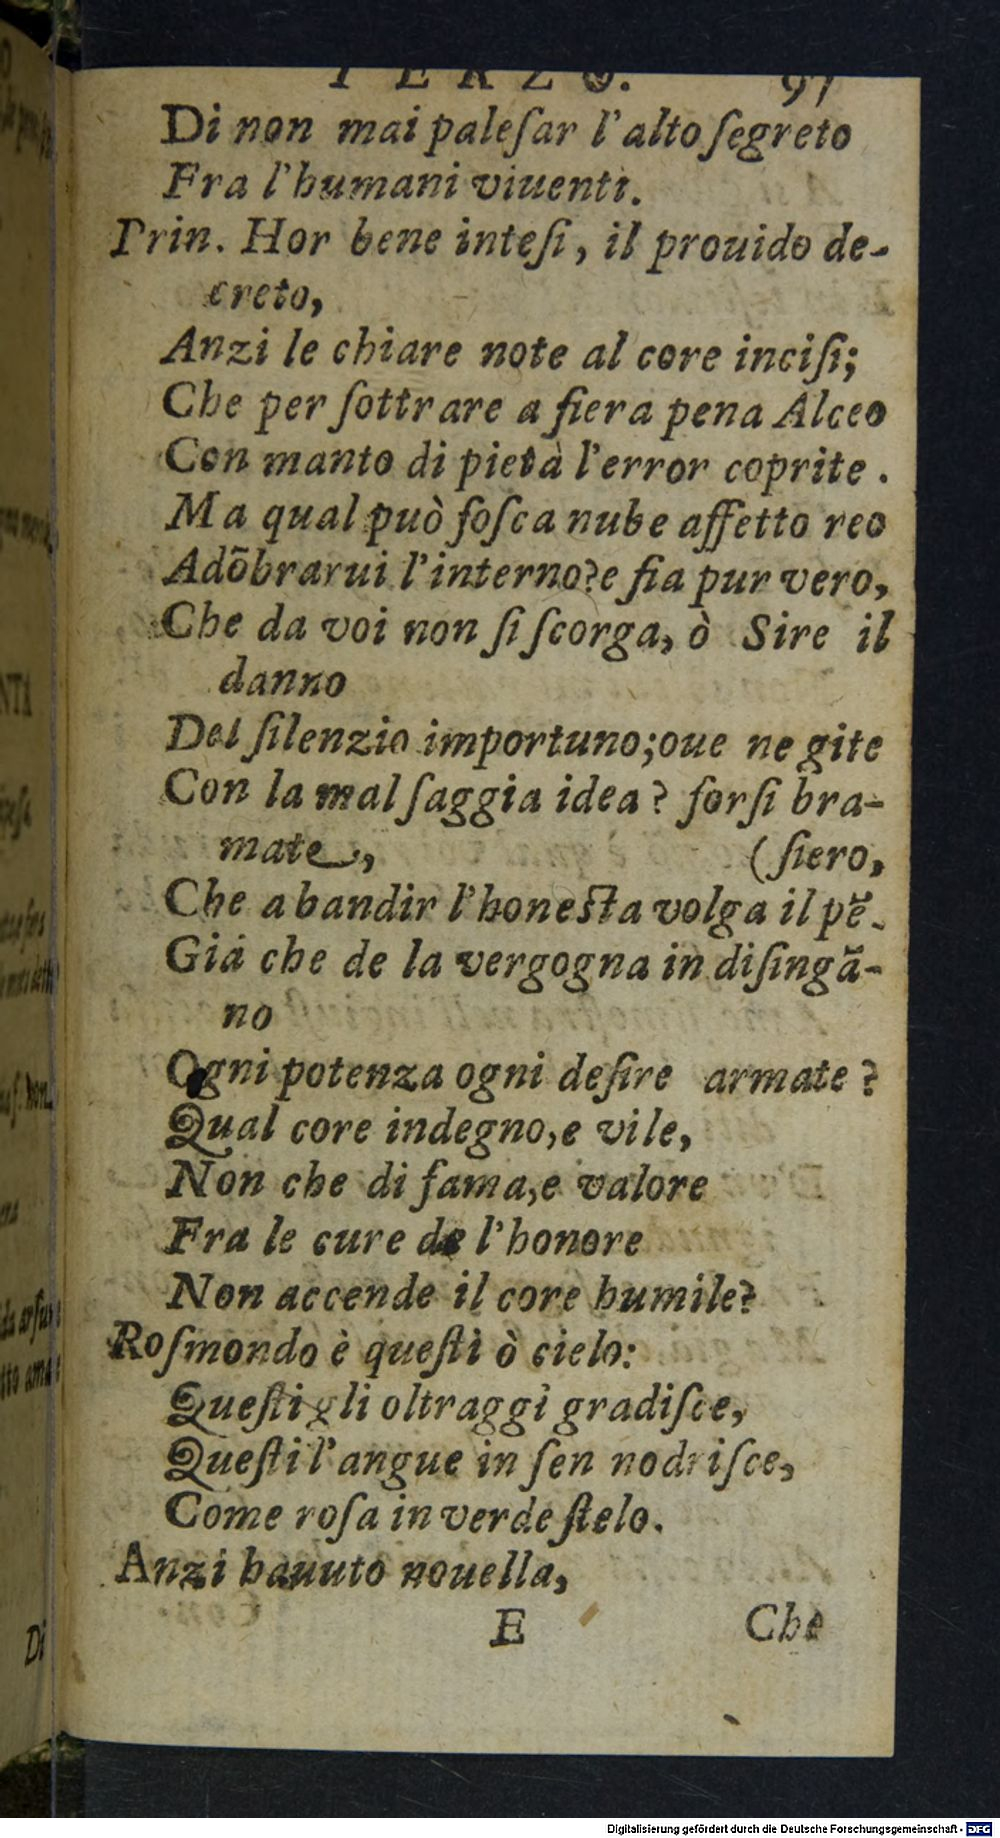 TERZO. 97
Di non mai paleſar l'alto ſegreto
Fra l'humani viuenti.
Prin. Hor bene inteſi, il prouido de-
creto,
Anzi le chiare note al core inciſi;
Che per ſottrare a fiera pena Alceo
Con manto di pietà l'error coprite.
Ma qual può foſca nube affetto reo
Adõbrarui l'interno? e fia pur vero,
Che da voi non ſi ſcorga, ò Sire il
danno
Del ſilenzio importuno; oue ne gite
Con la mal ſaggia idea? forſi bra-
mate, (ſiero,
Che a bandir l'honeſta volga il pẽ-
Giá che de la vergogna in diſingã-
no
Ogni potenza ogni deſire armate?
Qual core indegno, e vile,
Non che di fama, e valore
Fra le cure de l'honore
Non accende il core humile?
Roſmondo è queſti ò cielo:
Queſti gli oltraggi gradiſce,
Queſti l'angue in ſen nodriſce,
Come roſa in verde ſtelo.
Anzi hauuto nouella,
E Che
Di
Digitalisierung gefördert durch die Deutsche Forschungsgemeinschaft - DFG